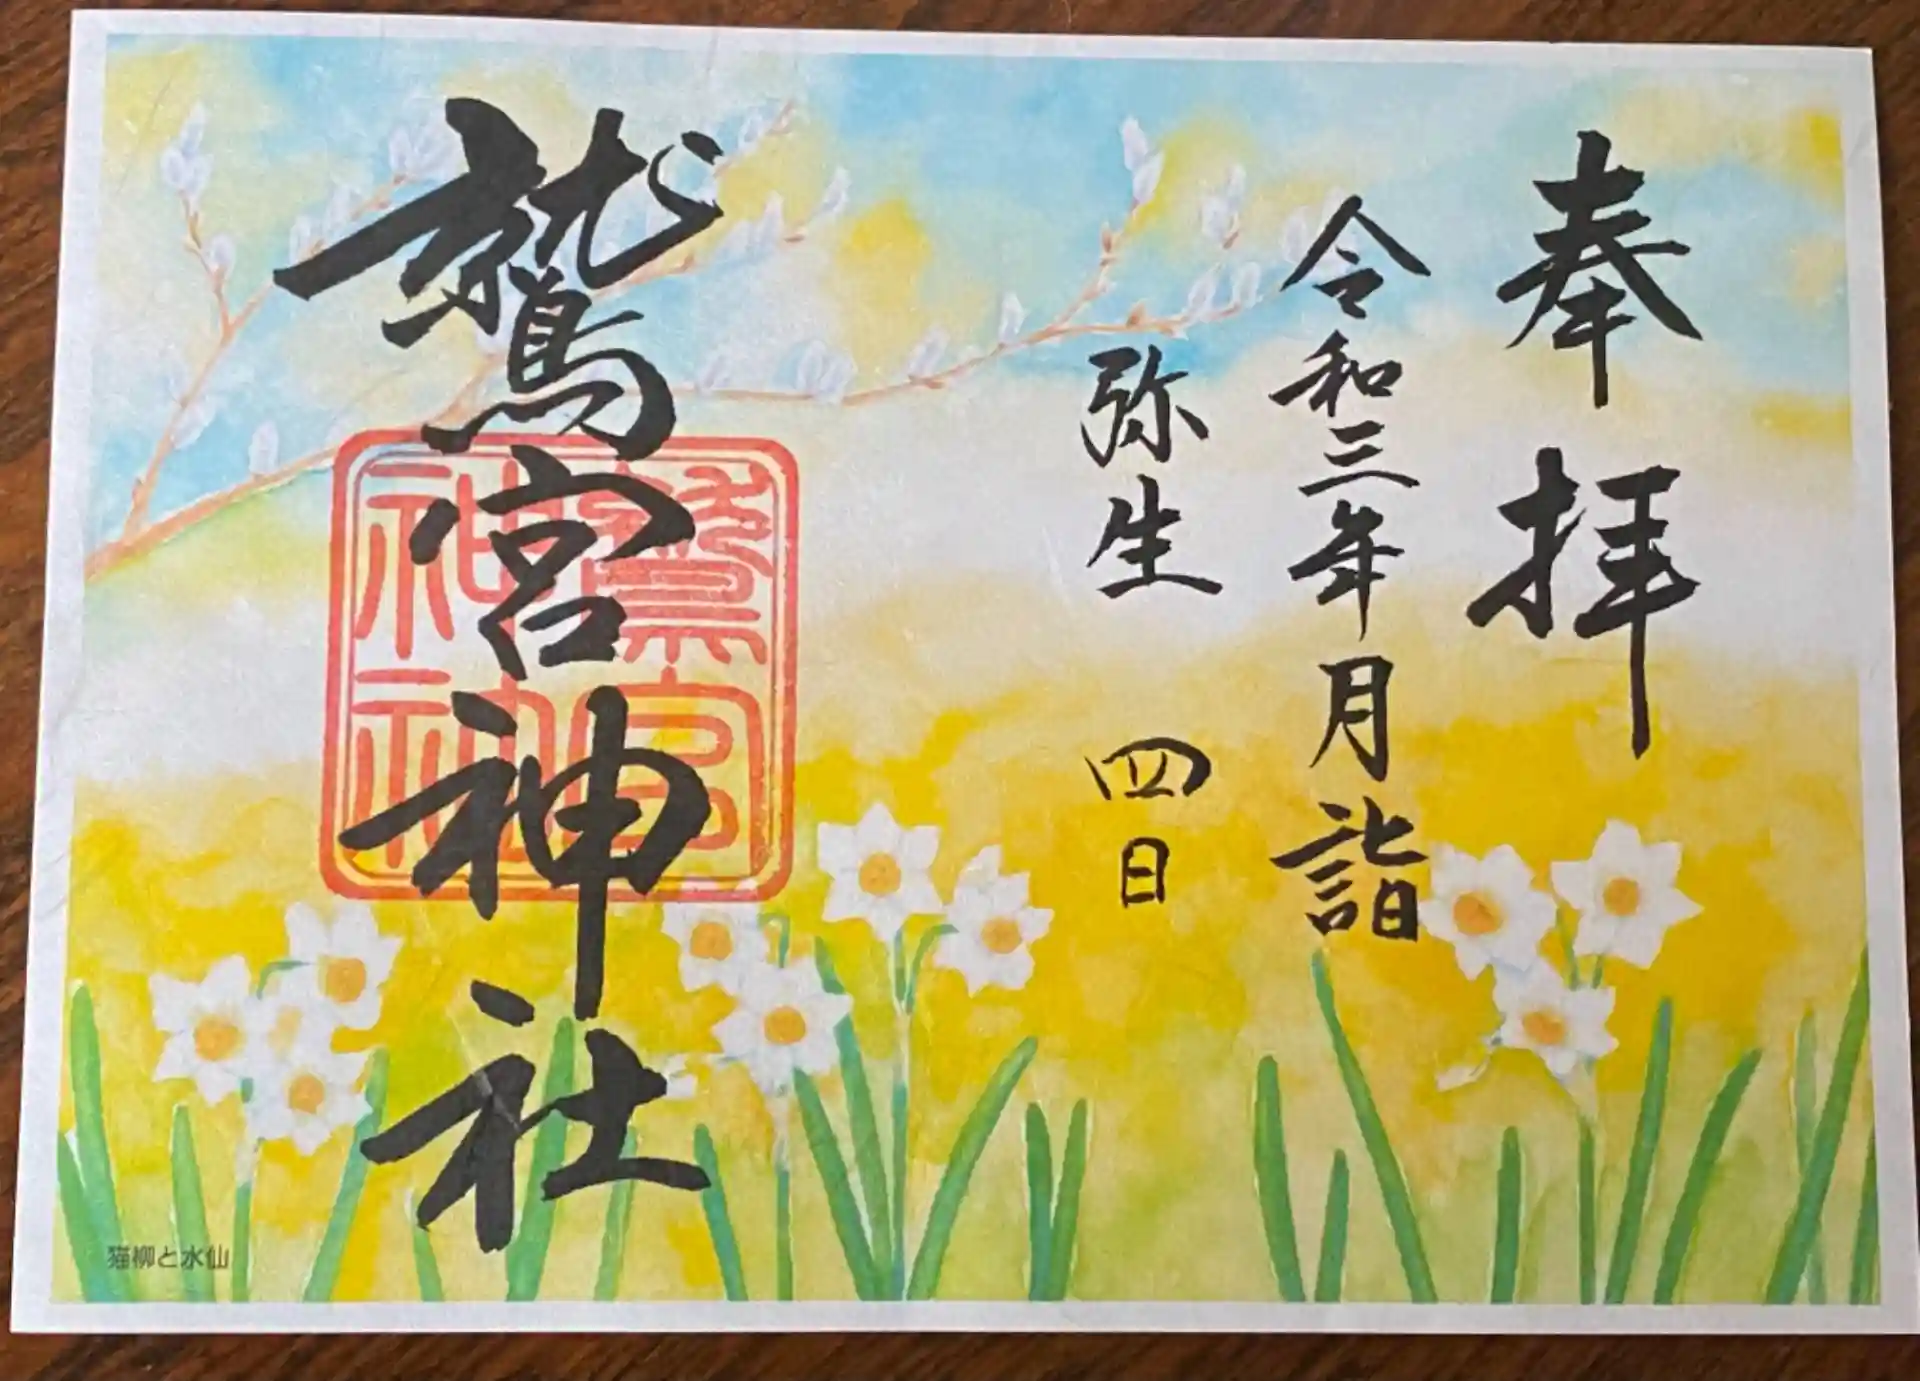 奉拝
令和三年月詣
弥生 四日
鷲宮神社
鷲宮
神社
猫柳と水仙